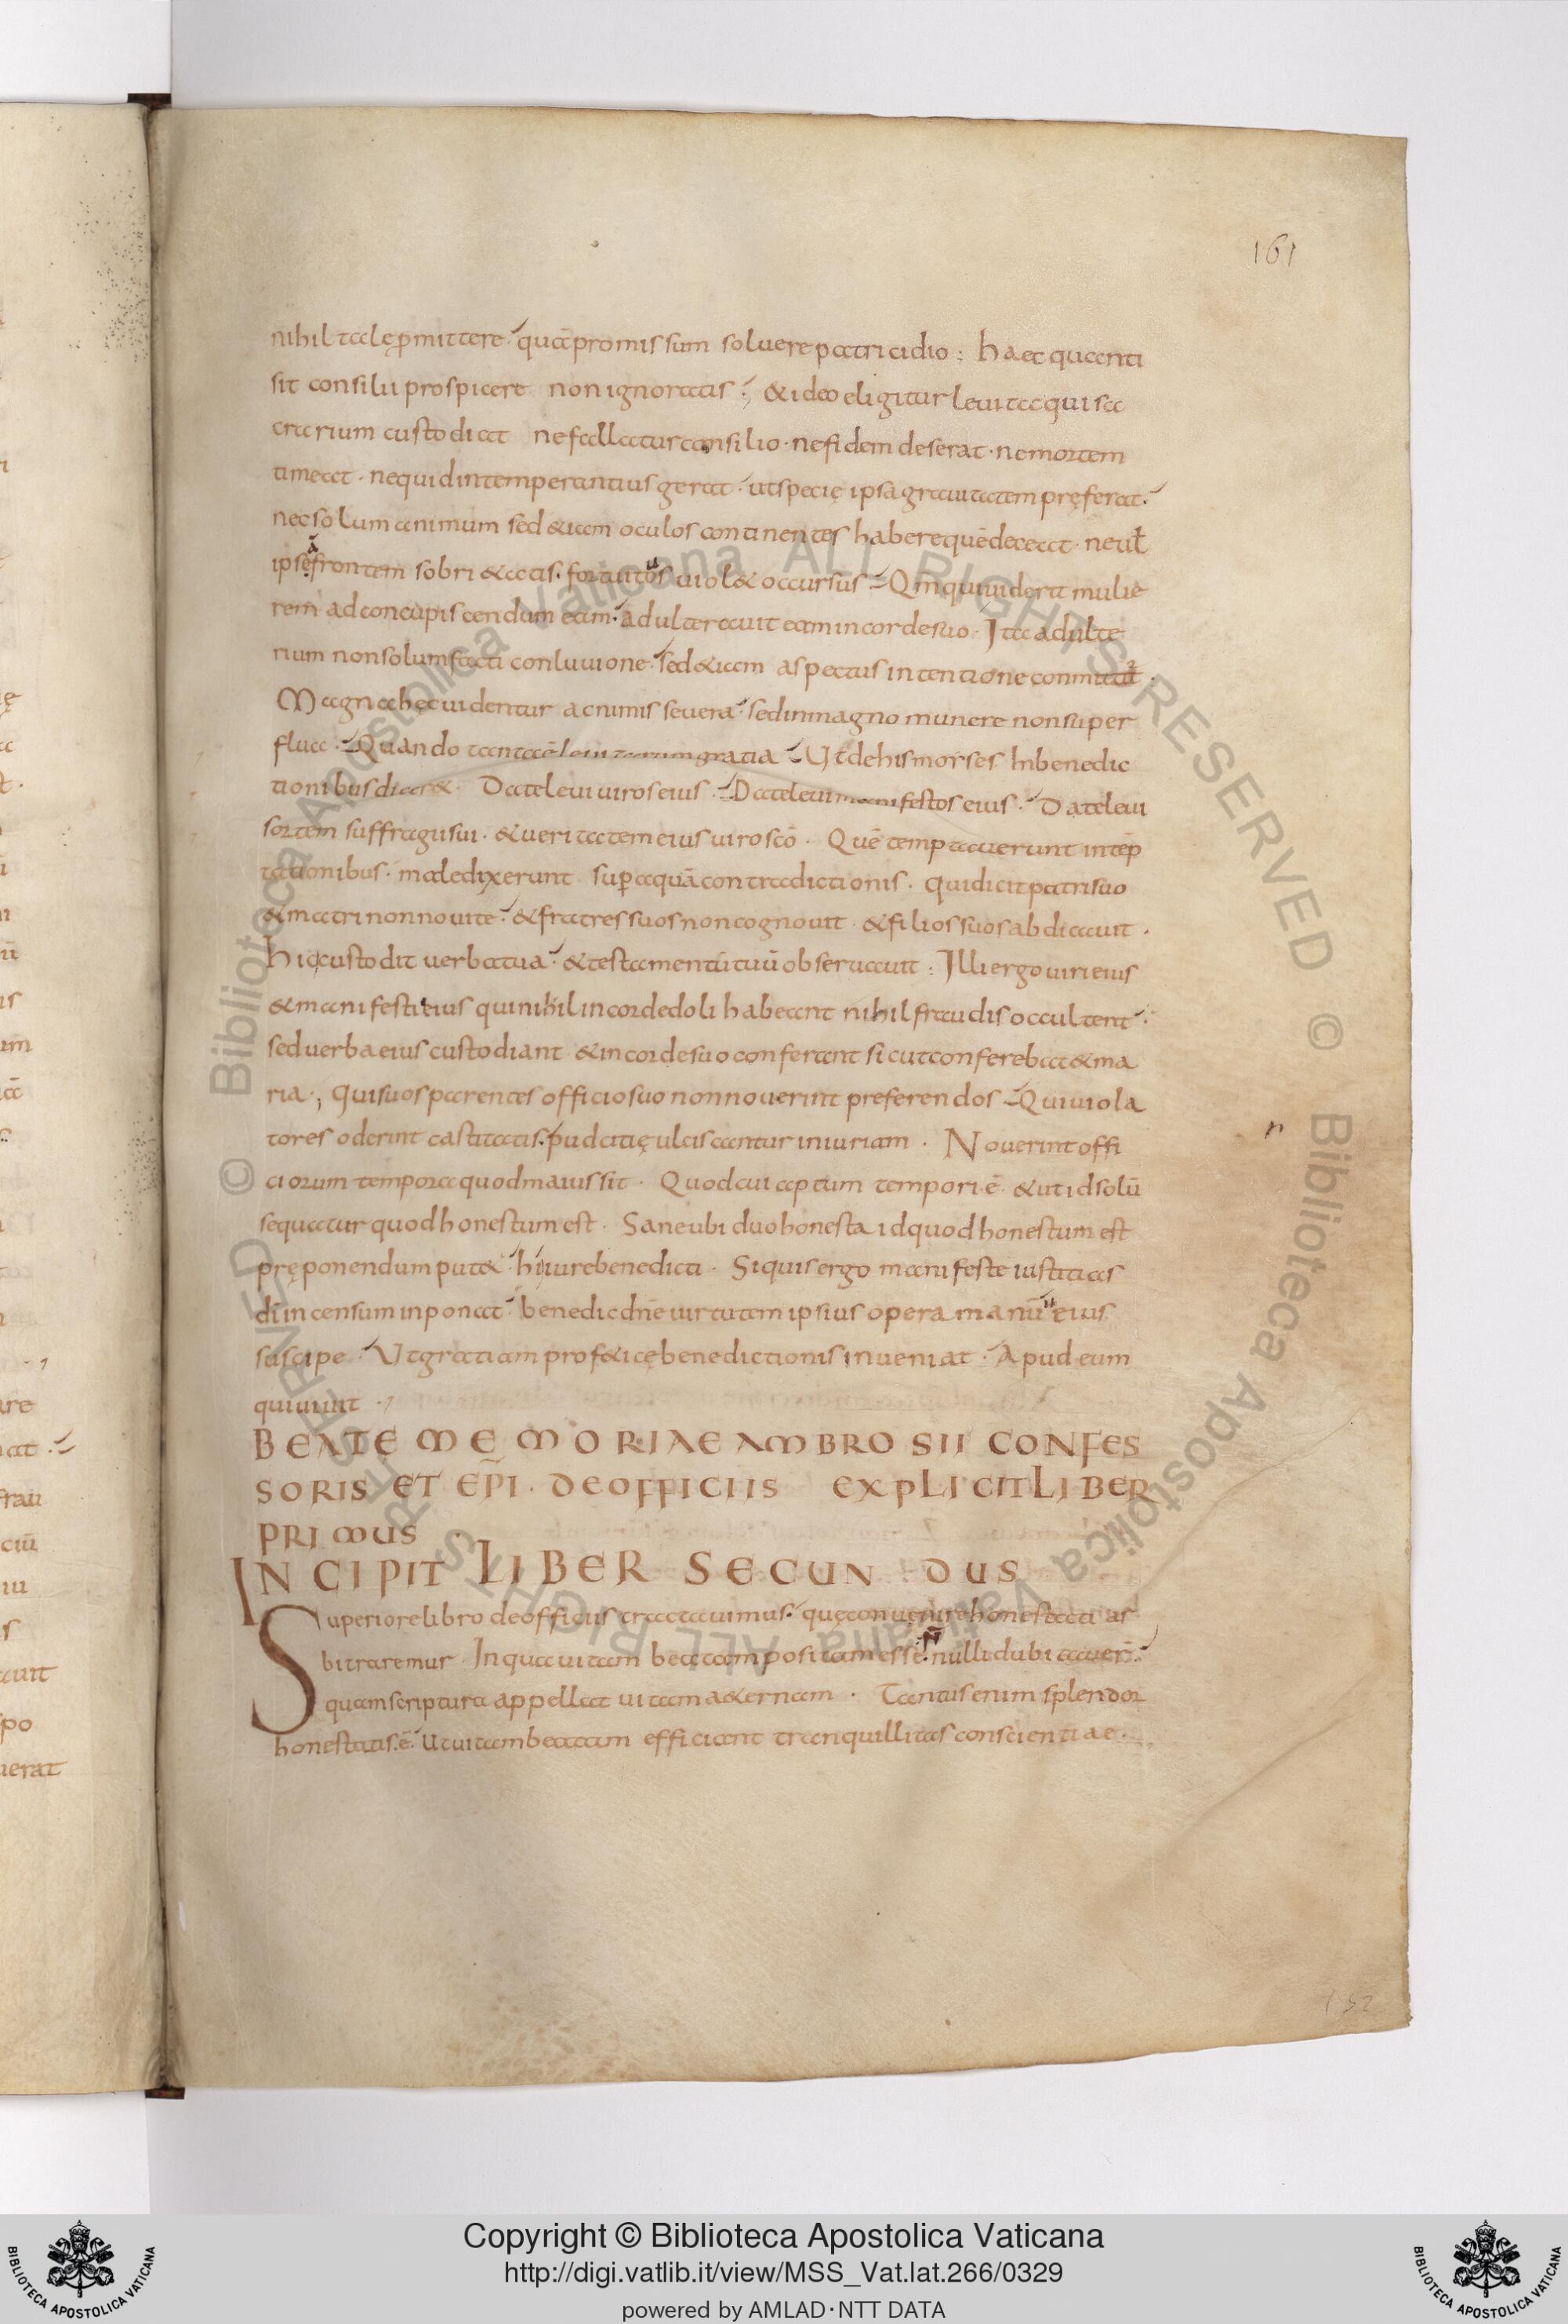 161
nihil tale ꝑmittere quā promissum soluere parricidio : haec quanti
sit consilii prospicere non ignoratis ; & ideo eligitur leuita qui sa
crarium custodiat ne fallatur consilio · ne fidem deserat · ne mortem
timeat · nequid intemperantius gerat · ut specie ipsa grauitatem pręferat ·
nec solum animum sed & iam oculos continentes habere quē deceat · ne ul
ipsę frontem sobri & atis · fortuitos uiol& occursus Qm qui uiderit mulie
rem ad concupiscendum eam · adulterauit eam in corde suo · Ita adulte
rium non solum facti conluuione · sed & iam aspectus intentione conmittit ·
Magna hęc uidentur ac nimis seuera · sed in magno munere non super
flua · Quando tanta ē leuitarum gratia Ut de his morses In benedic
tionibus dicer& · Date leui uiros eius · Date leui manifestos eius · Date leui
sortem suffragii sui · & ueritatem eius uiro scō · Quē temptauerunt in tēp
tationibus · maledixerunt suꝑ aquā contradictionis · qui dicit patri suo
& matri non noui te · & fratres suos non cognouit · & filios suos abdicauit ·
hic custodit uerba tua · & testamentū tuū obseruauit : Illi ergo uiri eius
& manifesti eius qui nihil in corde doli habeant nihil fraudis occultent ·
sed uerba eius custodiant & in corde suo conferant sicut conferebat & ma
ria · ; qui suos parentes officio suo non nouerint preferendos Qui uiola
tores oderint castitatis · pudcitię ulciscantur iniuriam · Nouerint offi
ciorum tempora quod maius sit · Quod cui aptum tempori ē · & ut id solū
sequatur quod honestum est · Sane ubi duo honesta id quod honestum est
pręponendum put& · hi iure benedicti · Siquis ergo manifeste iustitias
dī incensum inponat · benedic dn̄e uirtutem ipsius opera manuū eius
suscipe · Ut gratiam prof&icę benedictionis inueniat · Apud eum
qui uiuit ·
BEATE MEMORIAE AMBROSII CONFES
SORIS ET EP̄I · DE OFFICIIS EXPLICIT LIBER
PRIMUS ·
INCIPIT LIBER SECUNDUS
Superiore libro de officiis tractauimus · quę conuenire honestati ar
bitraremur · In qua uitam beatam positam esse · nulli dubitauer̄ ·
quam scriptura appellat uitam a&ernam · Tantus enim splendor
honestatis · ē · Ut uitam beatam efficiant tranquillitas conscientiae ·
n
152
© Biblioteca Apostolica Vaticana ALL RIGHTS RESERVED © Biblioteca Apostolica Vaticana ALL RIGHTS RESERVED
Copyright © Biblioteca Apostolica Vaticana
http://digi.vatlib.it/view/MSS_Vat.lat.266/0329
powered by AMLAD·NTT DATA
BIBLIOTECA APOSTOLICA VATICANA
BIBLIOTECA APOSTOLICA VATICANA